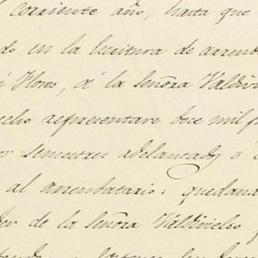 corriente año, hasta que
do en la Escritura de arrend
Hon, á la Señora Valdivi
cho representare doce mil p
r semestres adelantados ó
al arrendatario: quedan
der de la Señora Valdivielso